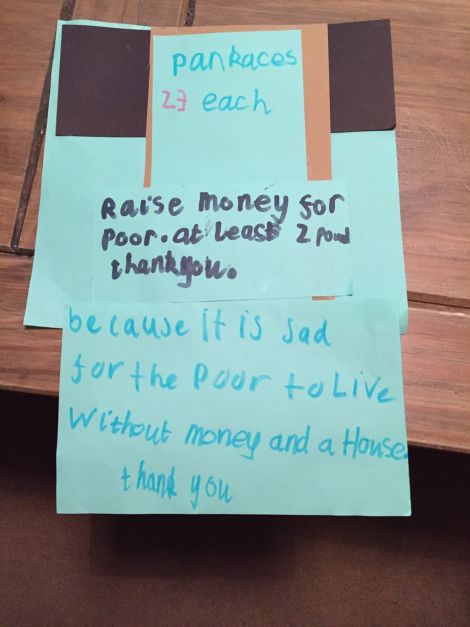 pankaces
23 each
Raise money for
Poor. at Least 2 Pound
thankyou.
because it is sad
for the Poor to Live
Without money and a House.
thank you